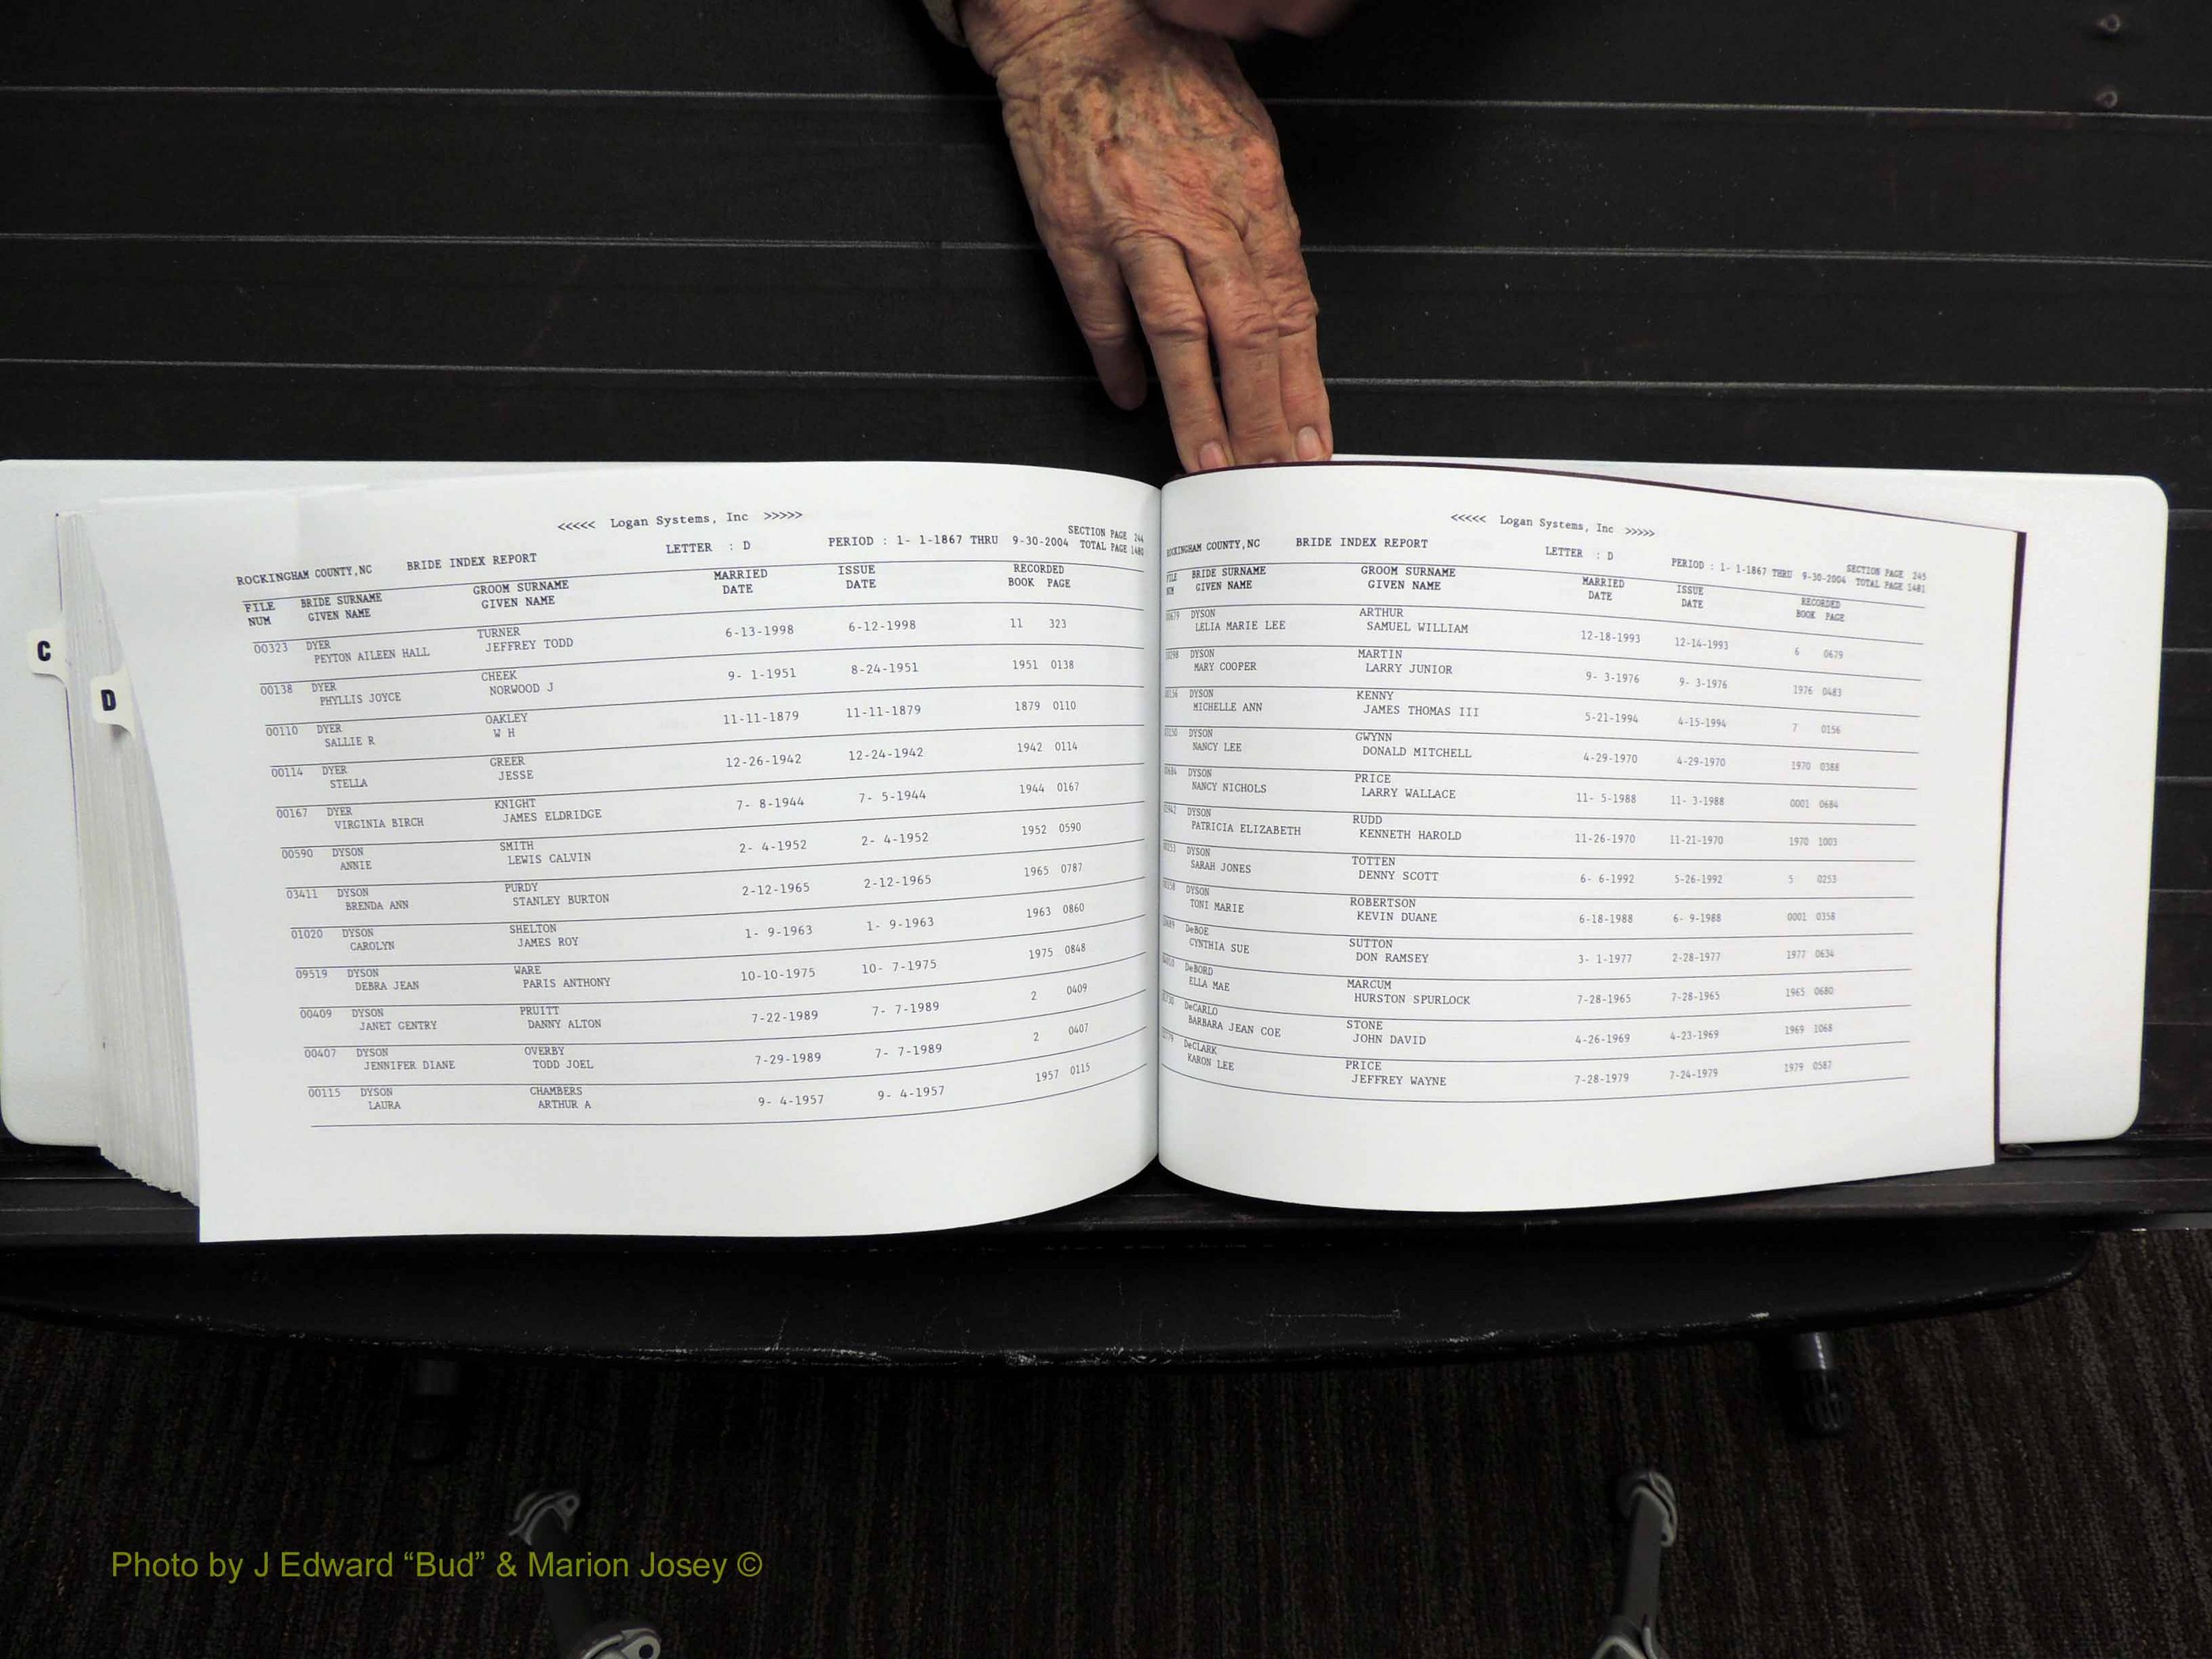 C
D
<<<<< Logan Systems, Inc >>>>>
SECTION PAGE 244
ROCKINGHAM COUNTY,NC BRIDE INDEX REPORT LETTER : D PERIOD : 1- 1-1867 THRU 9-30-2004 TOTAL PAGE 1480
FILE BRIDE SURNAME GROOM SURNAME MARRIED ISSUE RECORDED
NUM GIVEN NAME GIVEN NAME DATE DATE BOOK PAGE
00323 DYER TURNER 6-13-1998 6-12-1998 11 323
PEYTON AILEEN HALL JEFFREY TODD
00138 DYER CHEEK 9- 1-1951 8-24-1951 1951 0138
PHYLLIS JOYCE NORWOOD J
00110 DYER OAKLEY 11-11-1879 11-11-1879 1879 0110
SALLIE R W H
00114 DYER GREER 12-26-1942 12-24-1942 1942 0114
STELLA JESSE
00167 DYER KNIGHT 7- 8-1944 7- 5-1944 1944 0167
VIRGINIA BIRCH JAMES ELDRIDGE
00590 DYSON SMITH 2- 4-1952 2- 4-1952 1952 0590
ANNIE LEWIS CALVIN
03411 DYSON PURDY 2-12-1965 2-12-1965 1965 0787
BRENDA ANN STANLEY BURTON
01020 DYSON SHELTON 1- 9-1963 1- 9-1963 1963 0860
CAROLYN JAMES ROY
09519 DYSON WARE 10-10-1975 10- 7-1975 1975 0848
DEBRA JEAN PARIS ANTHONY
00409 DYSON PRUITT 7-22-1989 7- 7-1989 2 0409
JANET GENTRY DANNY ALTON
00407 DYSON OVERBY 7-29-1989 7- 7-1989 2 0407
JENNIFER DIANE TODD JOEL
00115 DYSON CHAMBERS 9- 4-1957 9- 4-1957 1957 0115
LAURA ARTHUR A
<<<<< Logan Systems, Inc >>>>>
SECTION PAGE 245
ROCKINGHAM COUNTY,NC BRIDE INDEX REPORT LETTER : D PERIOD : 1- 1-1867 THRU 9-30-2004 TOTAL PAGE 1481
FILE BRIDE SURNAME GROOM SURNAME MARRIED ISSUE RECORDED
NUM GIVEN NAME GIVEN NAME DATE DATE BOOK PAGE
DYSON ARTHUR 12-18-1993 12-14-1993 6 0679
LELIA MARIE LEE SAMUEL WILLIAM
DYSON MARTIN 9- 3-1976 9- 3-1976 1976 0483
MARY COOPER LARRY JUNIOR
DYSON KENNY 5-21-1994 4-15-1994 7 0156
MICHELLE ANN JAMES THOMAS III
DYSON GWYNN 4-29-1970 4-29-1970 1970 0388
NANCY LEE DONALD MITCHELL
DYSON PRICE 11- 5-1988 11- 3-1988 0001 0684
NANCY NICHOLS LARRY WALLACE
DYSON RUDD 11-26-1970 11-21-1970 1970 1003
PATRICIA ELIZABETH KENNETH HAROLD
DYSON TOTTEN 6- 6-1992 5-26-1992 5 0253
SARAH JONES DENNY SCOTT
DYSON ROBERTSON 6-18-1988 6- 9-1988 0001 0358
TONI MARIE KEVIN DUANE
DeBOE SUTTON 3- 1-1977 2-28-1977 1977 0634
CYNTHIA SUE DON RAMSEY
DeBORD MARCUM 7-28-1965 7-28-1965 1965 0680
ELLA MAE HURSTON SPURLOCK
DeCARLO STONE 4-26-1969 4-23-1969 1969 1068
BARBARA JEAN COE JOHN DAVID
DeCLARK PRICE 7-28-1979 7-24-1979 1979 0587
KARON LEE JEFFREY WAYNE
Photo by J Edward “Bud” & Marion Josey ©